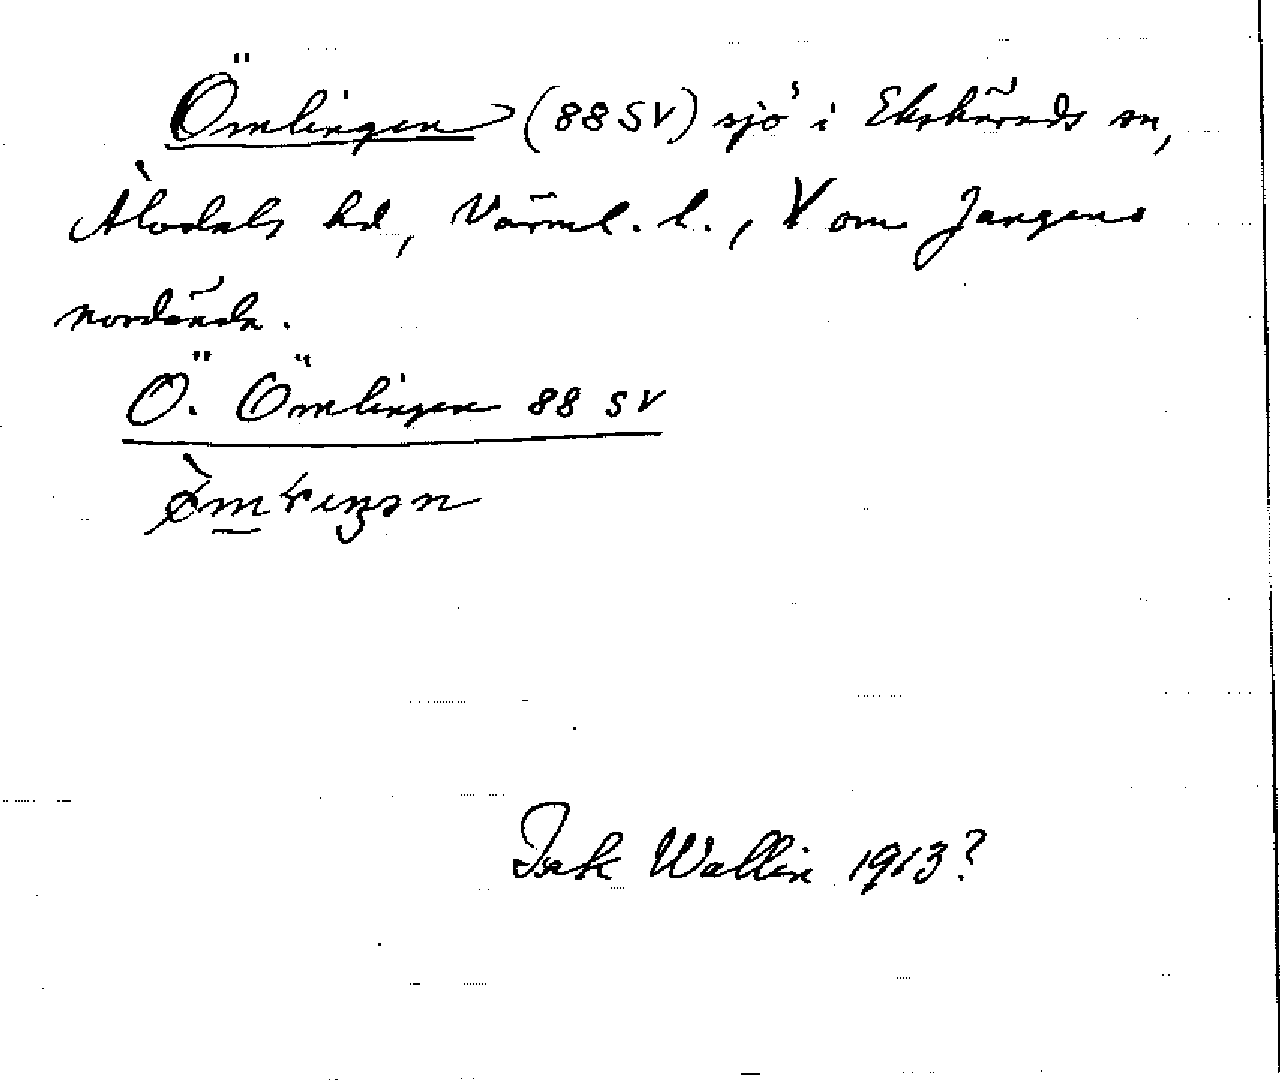 Ömlingen (88 SV) sjö i Ekshärads sn,
Älvdals hd, Värml. l., V om Jangens
nordände.
Ö. Ömlingen 88 SV
Isak Wallin 1913?